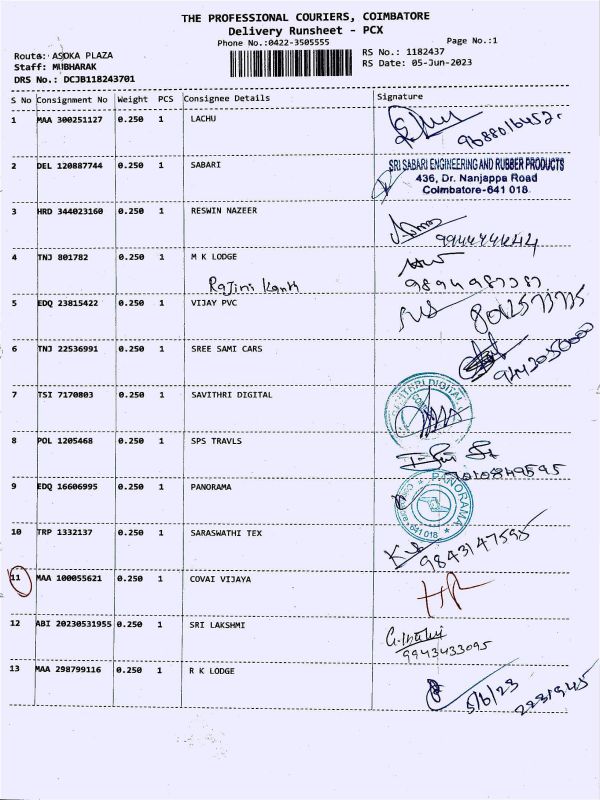 THE PROFESSIONAL COURIERS, COIMBATORE
Delivery Runsheet - PCX
Phone No.:0422-3505555
Page No.:1
Route: ASOKA PLAZA
RS No.: 1182437
Staff: MUBHARAK
RS Date: 05-Jun-2023
DRS No.: DCJB118243701
S No Consignment No Weight PCS Consignee Details Signature
1 MAA 300251127 0.250 1 LACHU
9688016452
2 DEL 120887744 0.250 1 SABARI
SRI SABARI ENGINEERING AND RUBBER PRODUCTS
436, Dr. Nanjappa Road
Coimbatore-641 018
3 HRD 344023160 0.250 1 RESWIN NAZEER
4 TNJ 801782 0.250 1 M K LODGE
Rajini Kanth
5 EDQ 23815422 0.250 1 VIJAY PVC
6 TNJ 22536991 0.250 1 SREE SAMI CARS
7 TSI 7170803 0.250 1 SAVITHRI DIGITAL
8 POL 1205468 0.250 1 SPS TRAVLS
9 EDQ 16606995 0.250 1 PANORAMA
PANORAMA
641 018
10 TRP 1332137 0.250 1 SARASWATHI TEX
9843147595
11 MAA 100055621 0.250 1 COVAI VIJAYA
12 ABI 20230531955 0.250 1 SRI LAKSHMI
9943433095
13 MAA 298799116 0.250 1 R K LODGE
5/6/23
2231945